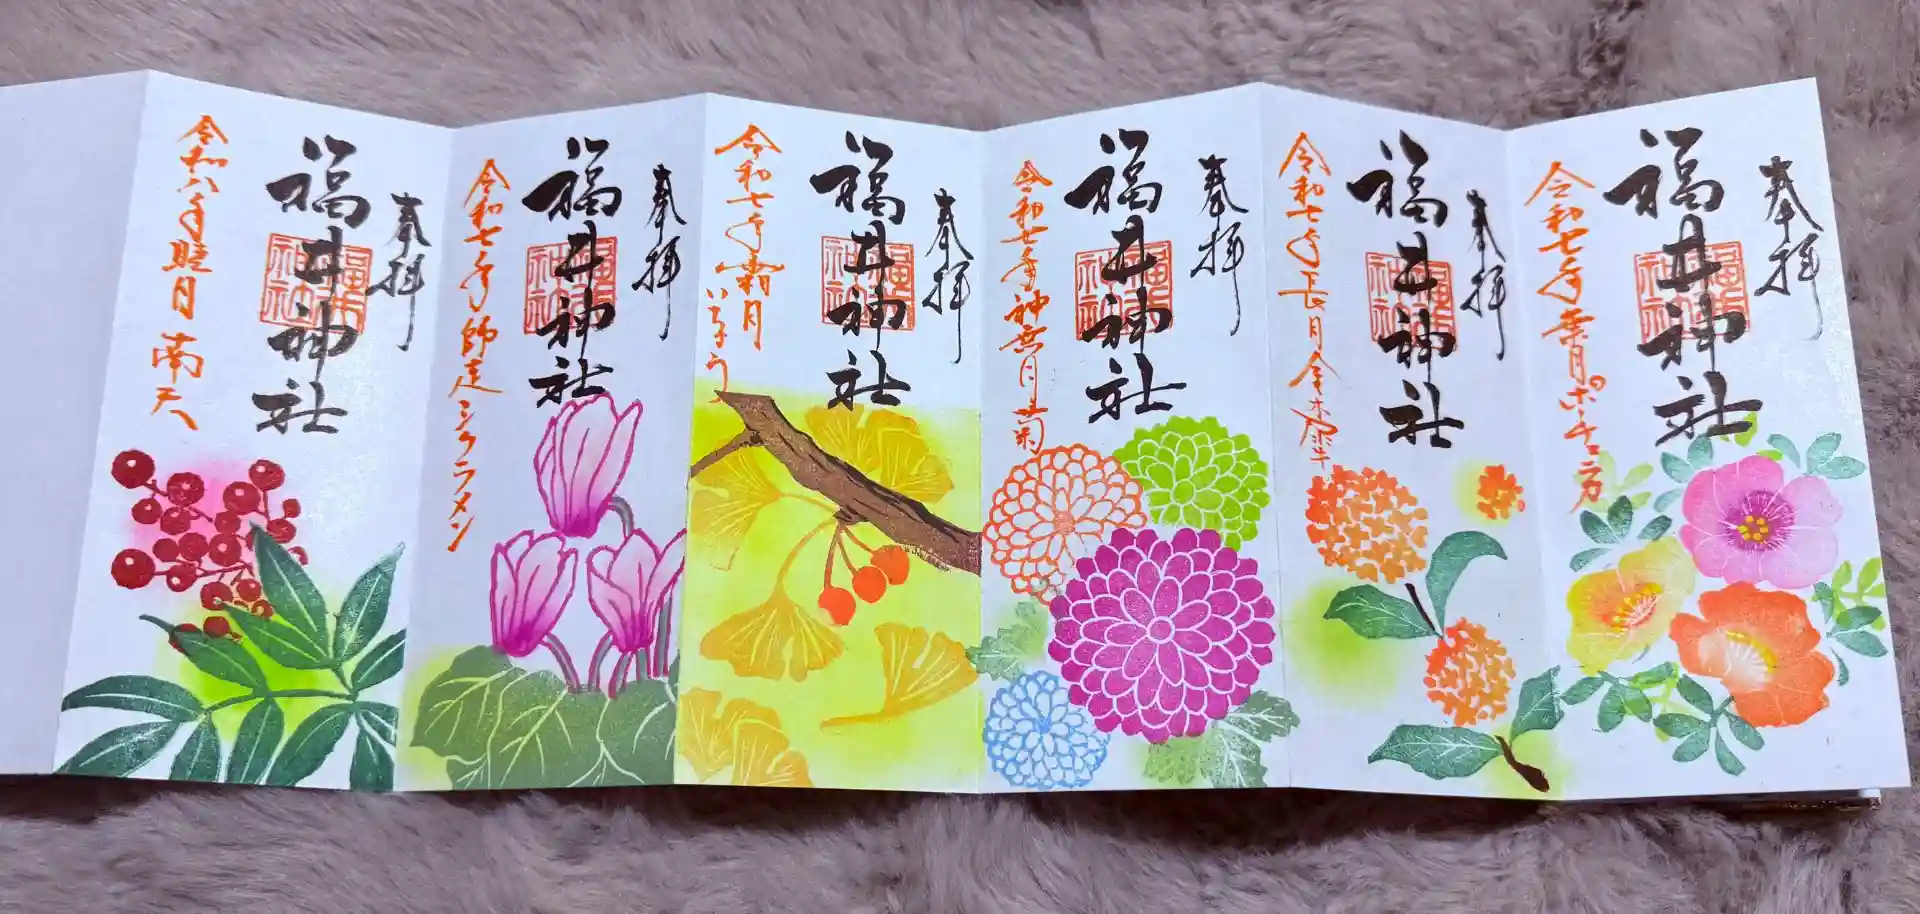 奉拝
福井神社
令和七年葉月 ポーチュラカ
奉拝
福井神社
令和七年長月 金木犀
奉拝
福井神社
令和七年神無月 菊
奉拝
福井神社
令和七年霜月 いちょう
奉拝
福井神社
令和七年師走 シクラメン
奉拝
福井神社
令和八年睦月 南天